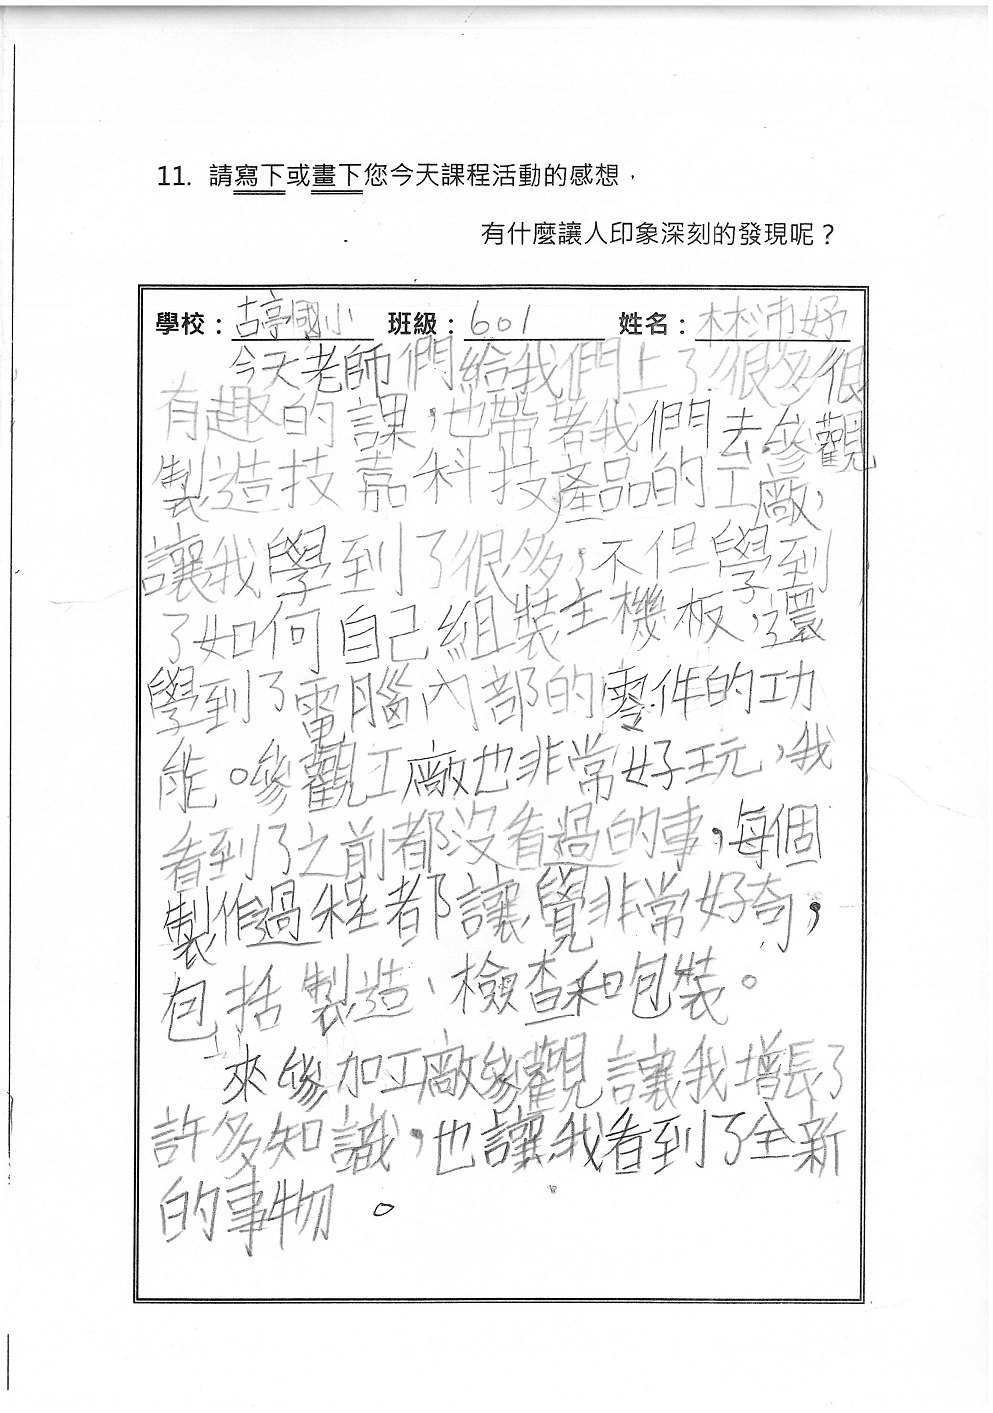 11. 請寫下或畫下您今天課程活動的感想，
有什麼讓人印象深刻的發現呢？
學校：古亭國小 班級：601 姓名：林沛妤
今天老師們給我們上了很多很
有趣的課，也帶著我們去參觀
製造技嘉科技產品的工廠，
讓我學到了很多，不但學到
了如何自己組裝主機板，還
學到了電腦內部的零件的功
能。參觀工廠也非常好玩，我
看到了之前都沒看過的事，每個
製作過程都讓覺非常好奇，
包括製造、檢查和包裝。
來參加工廠參觀讓我增長了
許多知識，也讓我看到了全新
的事物。